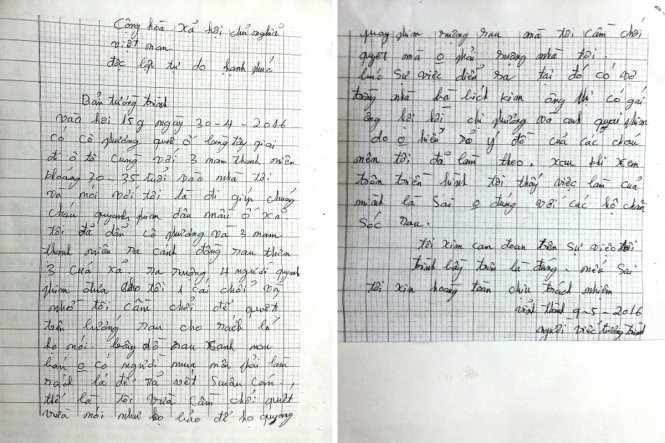 Công hòa xả hội chủ nghĩa
việt nam
độc lập tự do hạnh phúc
Bản tường trình
vào hồi 15g ngày 30-4-2016
có cô phương quê ở làng tây giai
đi ô tô cùng với 3 nam thanh niên
khoảng 30-35 tuổi vào nhà tôi
và nói với tôi là đi giúp chúng
cháu quyanh phim dâu mầu ở xã
tôi đã dẫn cô phương và 3 nam
thanh niên ra cánh đồng rau thôn
3 của xã ra ruộng 4 người đi quanh
phim đưa cho tôi 1 cái chổi và
nhờ tôi cầm chổi để quét
trên luống rau cho rách lá
họ nói rau xanh non
bán o có người mua nên phải làm
rách lá để rả vết sâu cắn,
thế là tôi vừa cầm chổi quét
vừa nói như họ bảo để họ quyang
quay phim ruộng rau mà tôi cầm chổi
quyét mà o phải ruộng nhà tôi.
lúc sự việc diển ra tại đó có vợ
trồng nhà bà bích kien ông thi có gái
ông hới hỏi chị phương và anh quyai phim
do o hiểu rỏ ý đồ của các cháu
nên tôi đả làm theo, xau khi xen
trên triền hình tôi thấy việc làm của
mình là sai o đúng với các hộ chăn
sóc rau.
tôi xin cam đoan trên sự việc tôi
trình bầy trên là đúng. nếu sai
tôi xin hoàng toàn chịu trách nhiệm
vĩnh thành 9-5-2016
người viết tường trình